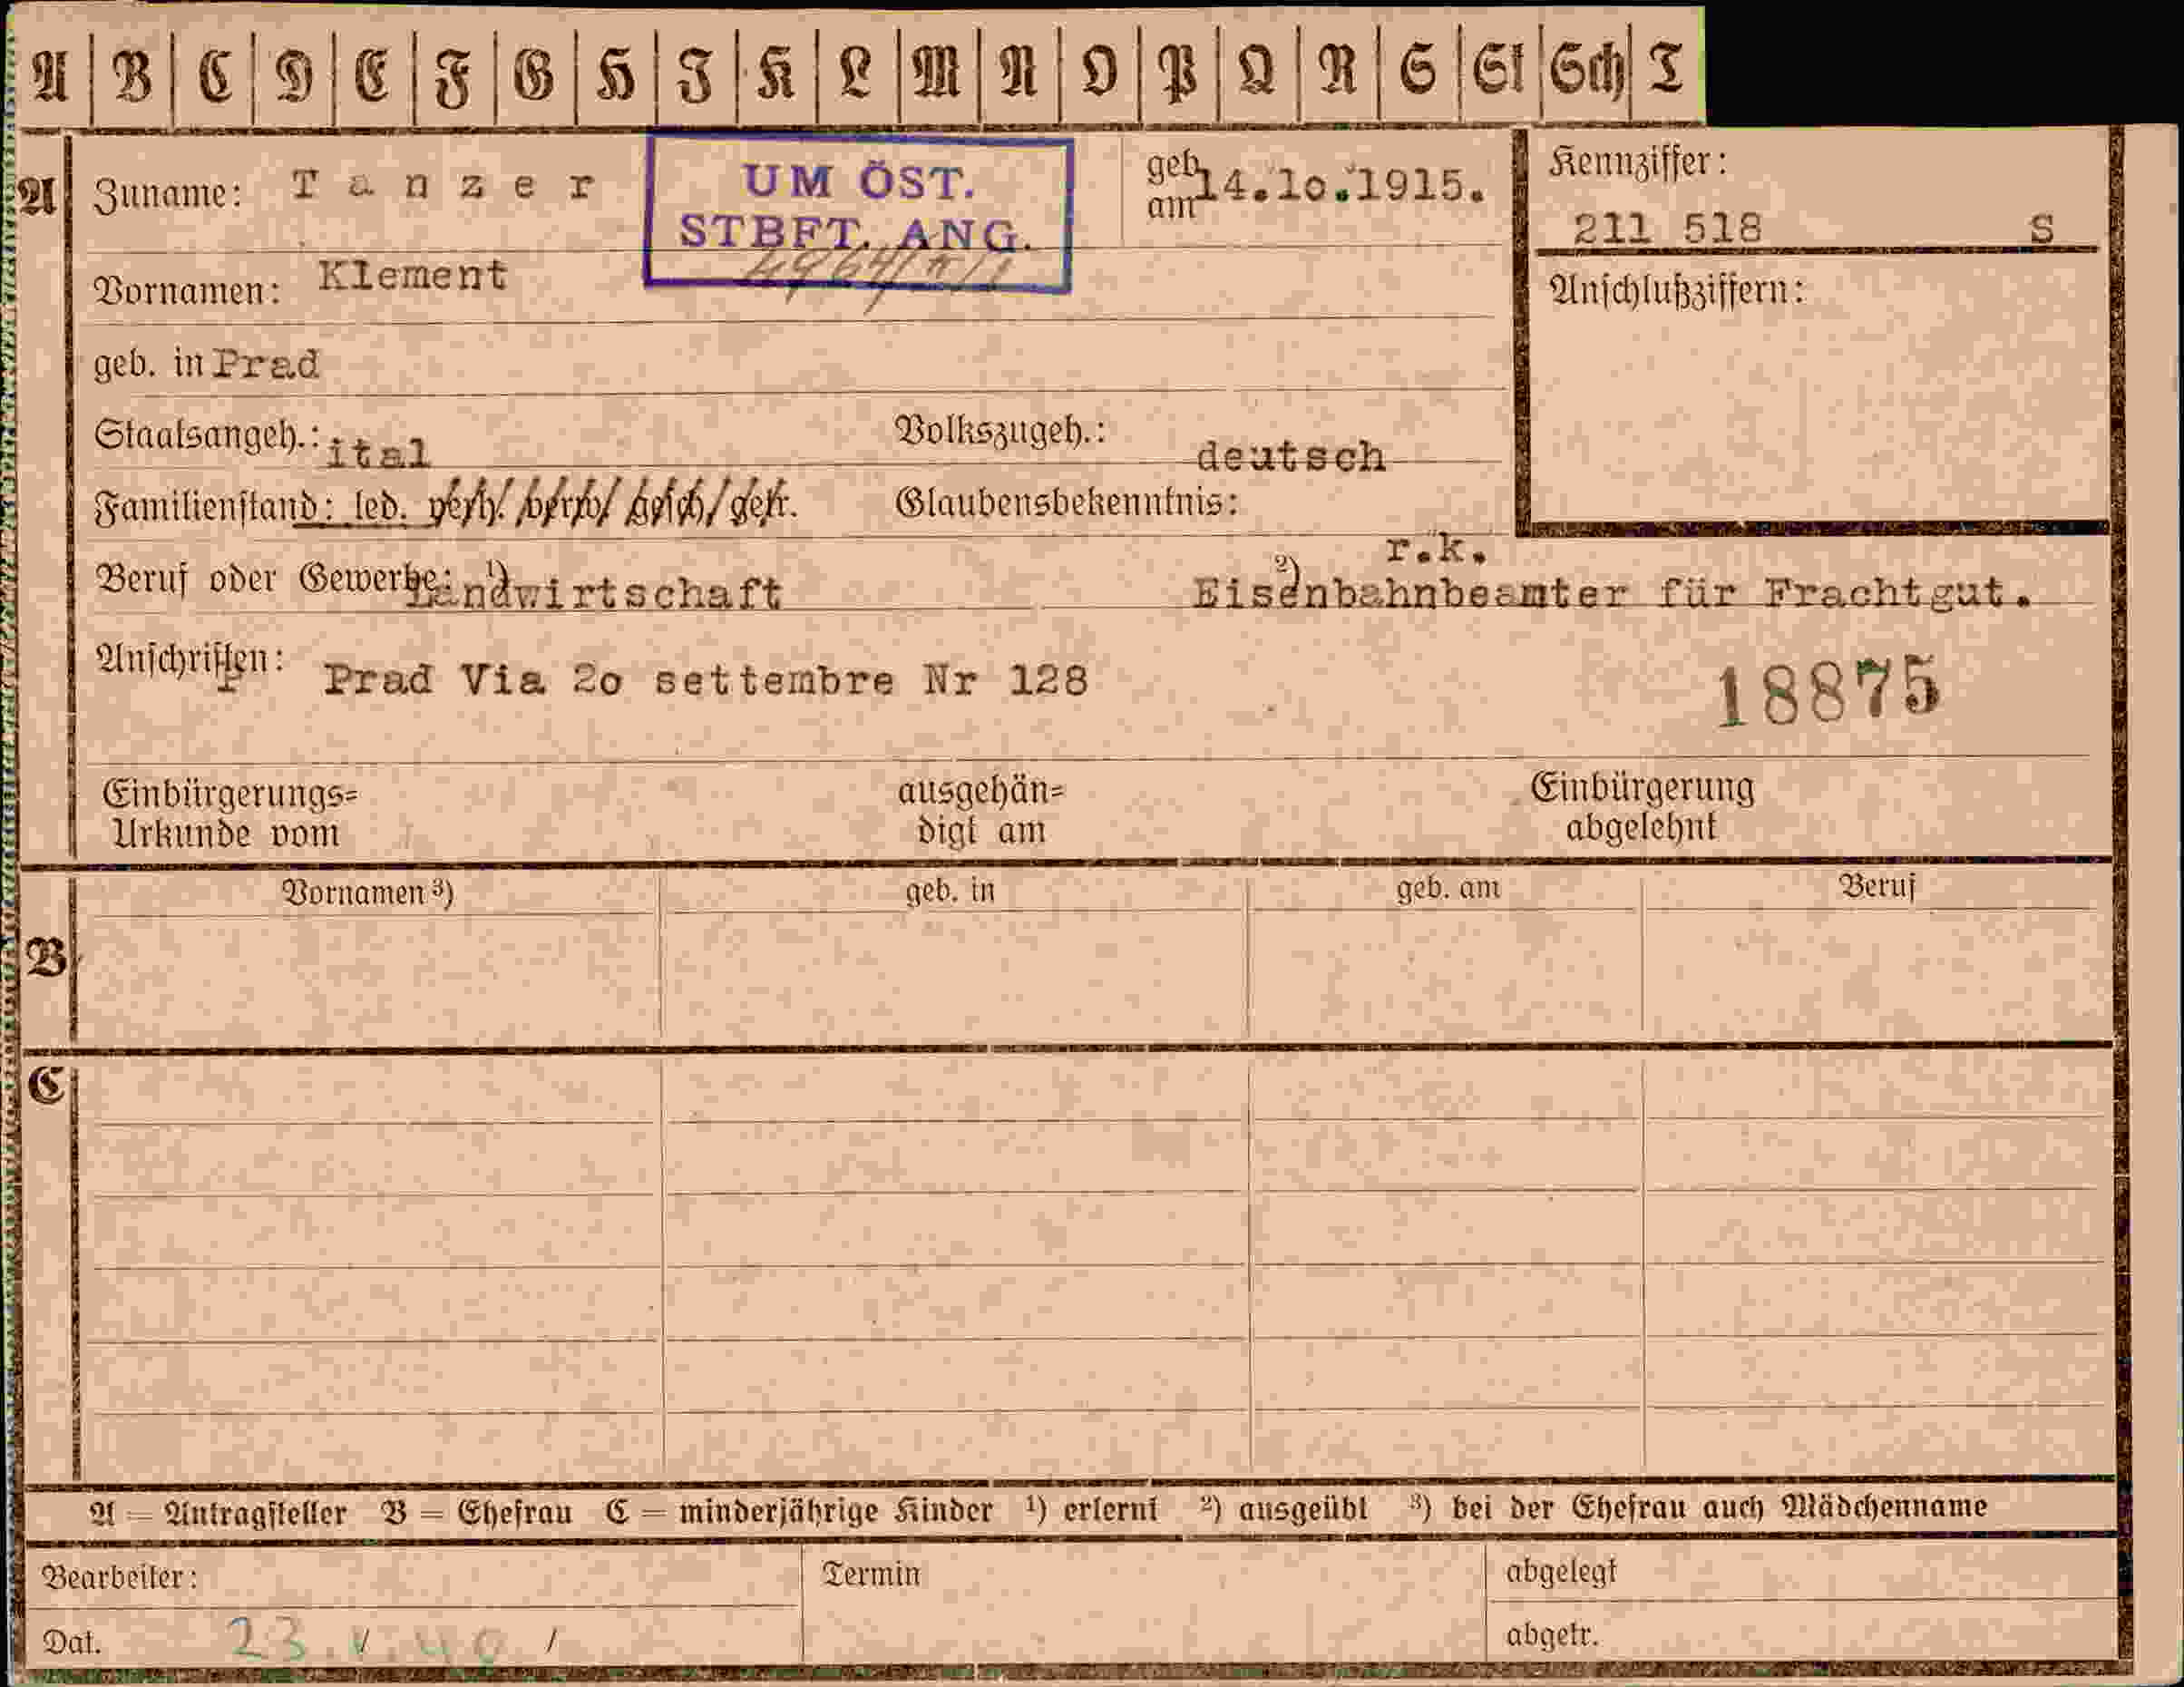 A B C D E F G H I K L M N O P Q R S St Sch T
A Zuname: Tanzer
UM ÖST.
STBFT. ANG.
geb. am 14.10.1915.
Kennziffer:
211 518 S
Vornamen: Klement
Anschlußziffern:
geb. in Prad
Staatsangeh.: ital
Volkszugeh.: deutsch
Familienstand: led. verh. verw. gesch. getr.
Glaubensbekenntnis: r.k.
Beruf oder Gewerbe: 1) Landwirtschaft 2) Eisenbahnbeamter für Frachtgut.
Anschriften: Prad Via 2o settembre Nr 128
18875
Einbürgerungs=
Urkunde vom
ausgehän=
digt am
Einbürgerung
abgelehnt
Vornamen 3) geb. in geb. am Beruf
B
C
A = Antragsteller B = Ehefrau C = minderjährige Kinder 1) erlernt 2) ausgeübt 3) bei der Ehefrau auch Mädchenname
Bearbeiter: Termin abgelegt
Dat. 23. V. 40 / abgetr.